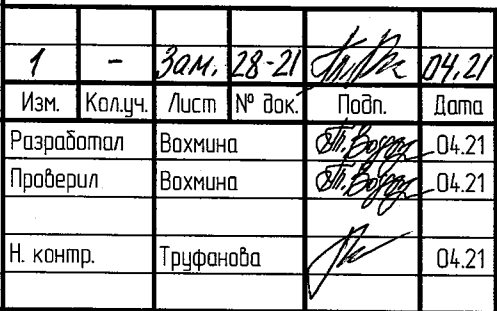 1 - Зам. 28-21 04.21
Изм. Кол.уч. Лист № док. Подп. Дата
Разработал Вахмина 04.21
Проверил Вахмина 04.21
Н. контр. Труфанова 04.21